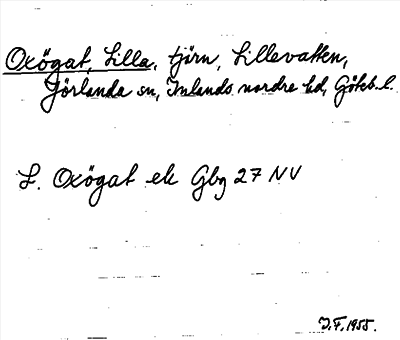 Oxögat, Lilla, tjörn, Lillevatten,
Jörlanda sn, Inlands nordre hd, Göteb. l.
L. Oxögat ek Gbg 27 NV
J.F. 1955.